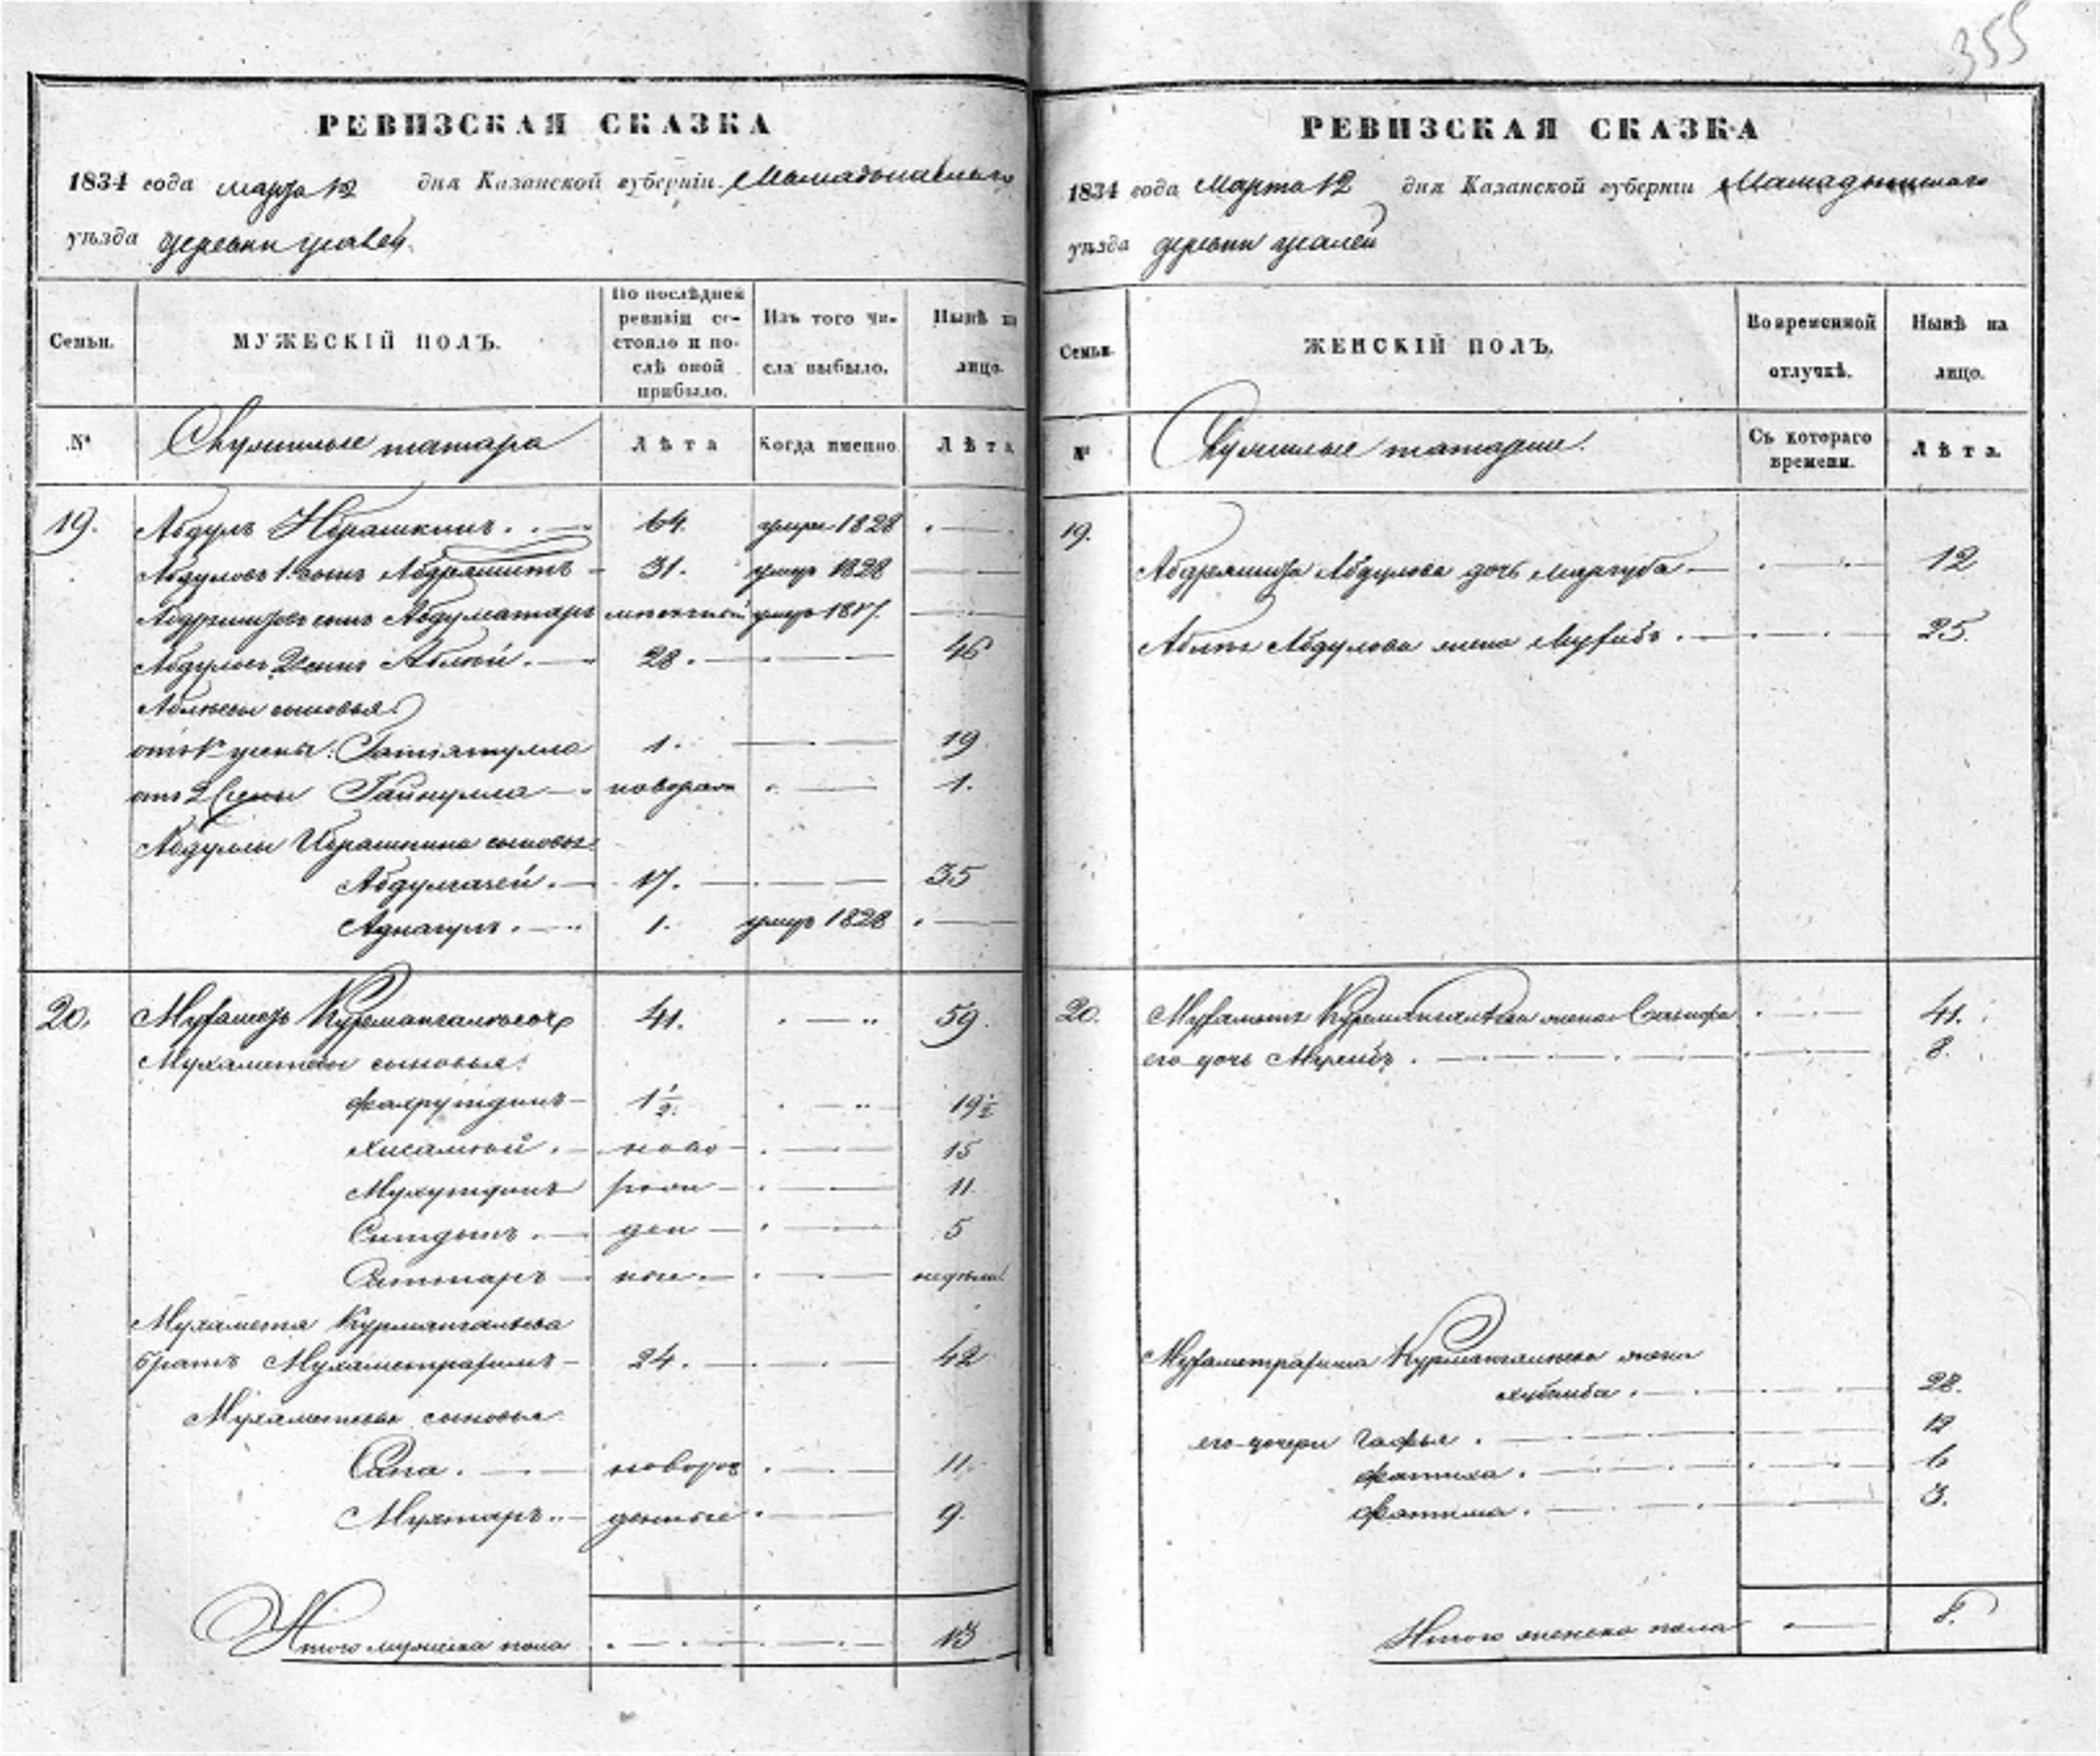 355
РЕВИЗСКАЯ СКАЗКА
1834 года марта 12 дня Казанской губерніи Мамадышскаго
уѣзда деревни
Семьи. МУЖЕСКІЙ ПОЛЪ. По послѣдней ревизіи состояло и послѣ оной прибыло. Изъ того числа выбыло. Нынѣ на лицо.
№ Служилые татара Лѣта Когда именно Лѣта
19. Абдулъ Ибрашкинъ. 64. умре 1828
Абдуловъ 1. сынъ Абдряшитъ 31. умре 1828
сынъ умре 1817.
Абдуловъ 2 сынъ Аблѣй. 28. 46
Аблѣевы сыновья
отъ 1й жены. 1. 19
отъ 2 жены Гайнулла новорож 1.
Абдуллы Ибрашкина сыновья
17. 35
Аднагулъ. 1. умре 1828
20. Мухаметъ Курмангалѣевъ 41. 59.
Мухаметевы сыновья:
Фахрутдинъ 1½. 19½
Хисамѣй. ново 15
Мухутдинъ рож 11
ден 5
Саттаръ ные. недѣли
Мухаметя Курмангалѣева
братъ Мухаметрахимъ 24. 42
сыновья
Сапа. новорож 11.
Мухтаръ.. денные 9.
Итого мужеска пола 13
РЕВИЗСКАЯ СКАЗКА
1834 года Марта 12 дня Казанской губерніи Мамадышскаго
уѣзда деревни
Семьи. ЖЕНСКІЙ ПОЛЪ. Во временной отлучкѣ. Нынѣ на лицо.
№ Служилые татарки. Съ котораго времени. Лѣта.
19. Абдряшита Абдулова дочь Маргуба 12
Аблѣя Абдулова жена 25.
20. Мухаметя Курмангалѣева жена 41.
его дочь 8.
Мухаметрахима Курмангалѣева жена
Хубиба. 28.
его дочери Гафья. 12
Фатиха. 6
Фатима. 3.
Итого женска пола 8.